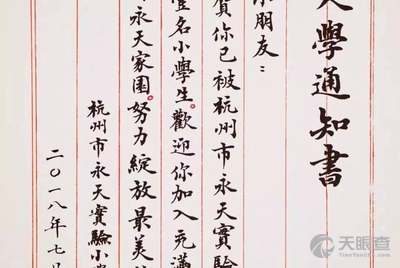 入學通知書
朋友：
賀你已被杭州市永天實驗
壹名小學生。歡迎你加入充滿
永天家園。努力綻放最美
杭州市永天實驗小
二〇一八年七
天眼查